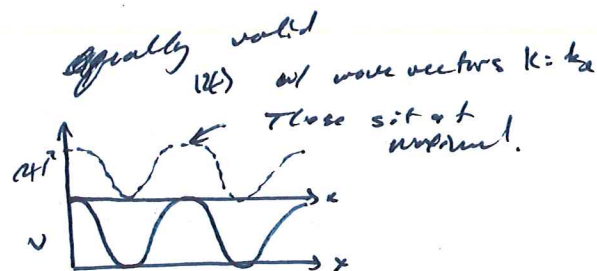 equally valid
|ψ⟩ w/ wave vectors k =
These sit at
|ψ|²
x
V
x